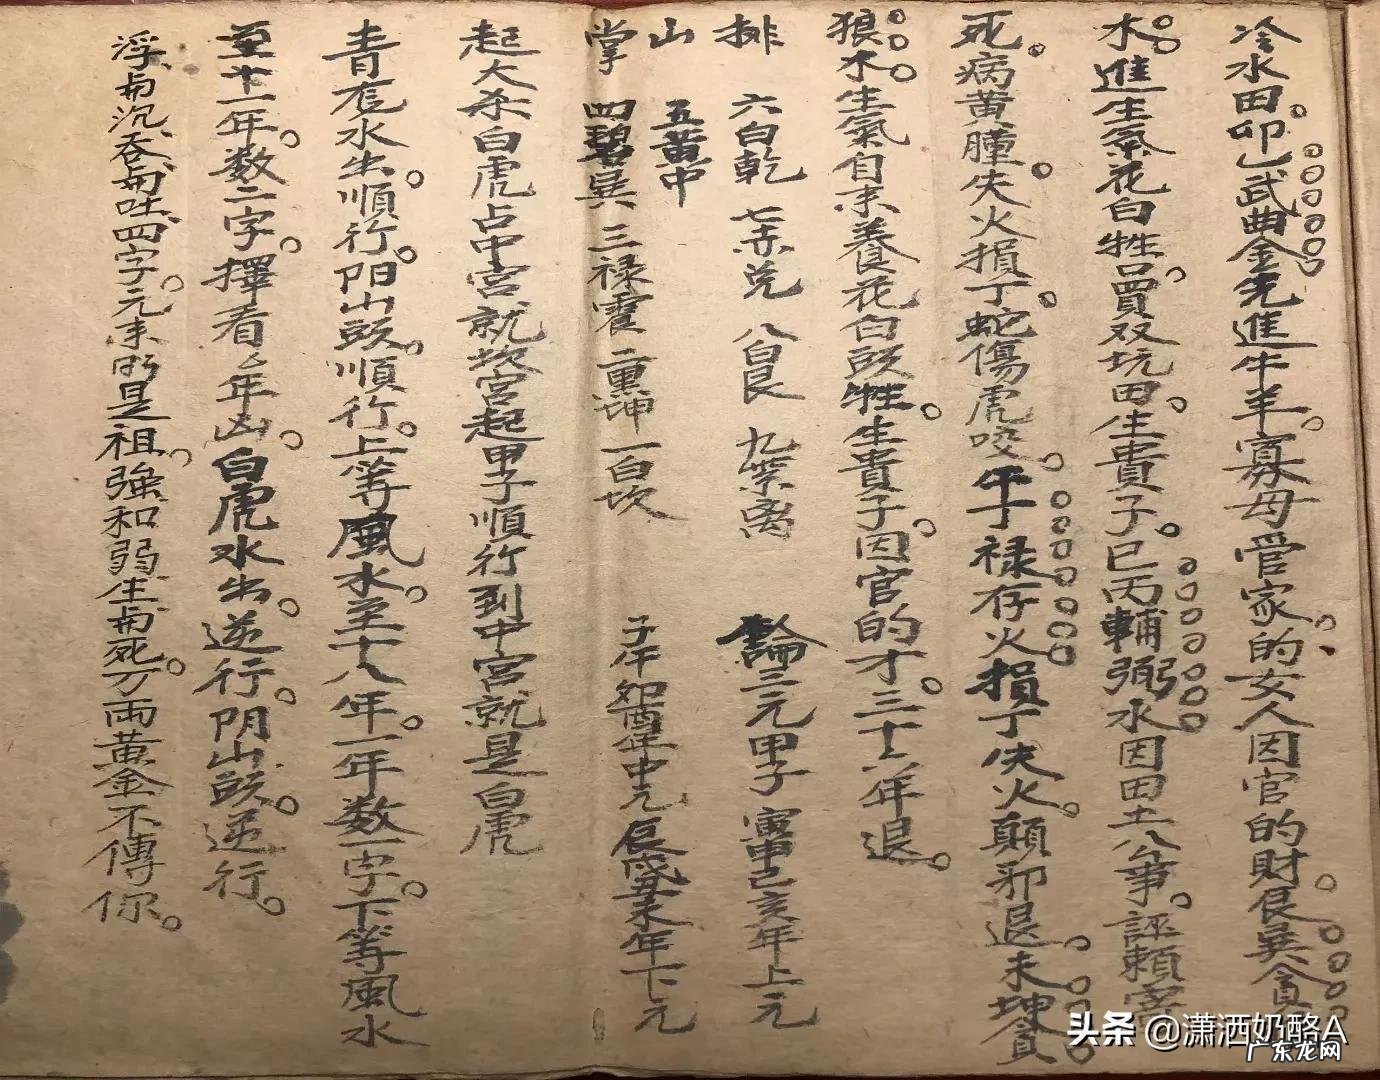 冷水田。卯乙武曲金先進牛羊。寡母管家的女人因官的財。艮巽貪
水進生氣花白牲。買双坑田。生貴子。巳丙輔弼水因田土公爭。誣賴
死。病黄腫。失火損丁。蛇傷虎咬。午丁禄存火。損丁失火。顛邪退。未坤貪
狼水。生氣自來養花白頭牲。生貴子。因官的才。三十六年退。
排 六白乾 七赤兑 八白艮 九紫离 論三元甲子 寅申巳亥年上元
山 五黄中
掌 四碧巽 三禄震 二黑坤 一白坎 子午卯酉年中元 辰戌丑未年下元
起大杀白虎占中宫就坎宫起甲子順行到中宫就是白虎
青龙水出順行。阳山頭。順行。上等風水。至十八年。一年数一字。下等風水
至十一年。数二字。擇看年凶。白虎水出。逆行。阴山頭。逆行。
浮與沉吞與吐四字。元來的是祖。強和弱生與死。万両黄金不傳你。
头条 @潇洒奶酪A
广东龙网